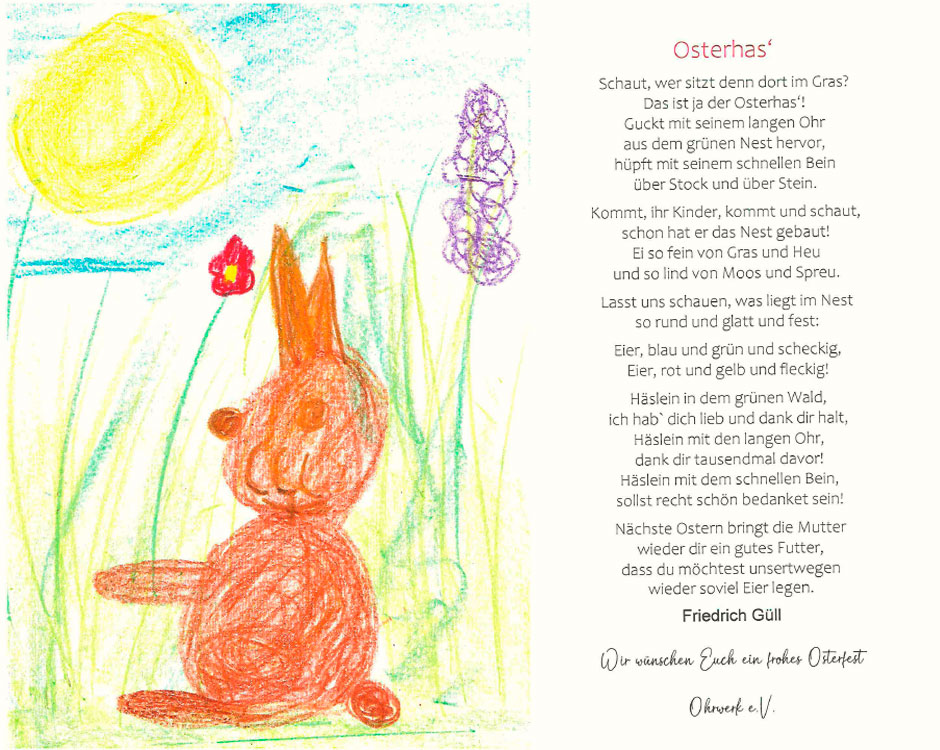 Osterhas‘
Schaut, wer sitzt denn dort im Gras?
Das ist ja der Osterhas‘!
Guckt mit seinem langen Ohr
aus dem grünen Nest hervor,
hüpft mit seinem schnellen Bein
über Stock und über Stein.
Kommt, ihr Kinder, kommt und schaut,
schon hat er das Nest gebaut!
Ei so fein von Gras und Heu
und so lind von Moos und Spreu.
Lasst uns schauen, was liegt im Nest
so rund und glatt und fest:
Eier, blau und grün und scheckig,
Eier, rot und gelb und fleckig!
Häslein in dem grünen Wald,
ich hab` dich lieb und dank dir halt,
Häslein mit den langen Ohr,
dank dir tausendmal davor!
Häslein mit dem schnellen Bein,
sollst recht schön bedanket sein!
Nächste Ostern bringt die Mutter
wieder dir ein gutes Futter,
dass du möchtest unsertwegen
wieder soviel Eier legen.
Friedrich Güll
Wir wünschen Euch ein frohes Osterfest
Ohrwerk e.V.